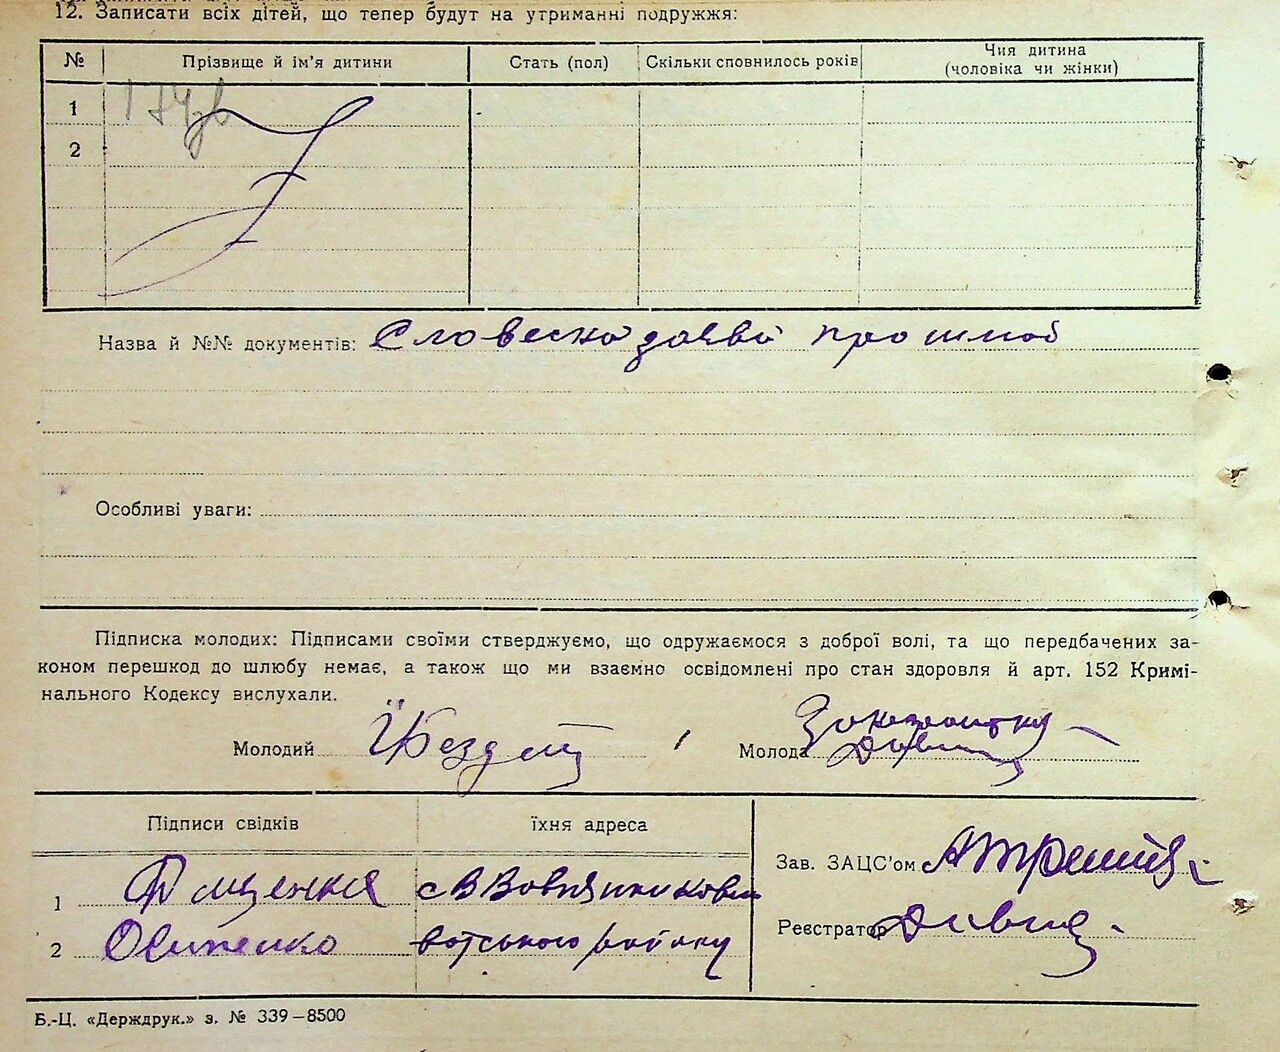 12. Записати всіх дітей, що тепер будут на утриманні подружжя:
№ Прізвище й ім'я дитини Стать (пол) Скільки сповнилось років Чия дитина
(чоловіка чи жінки)
1
2
Назва й №№ документів: Словесна заява про шлюб
Особливі уваги:
Підписка молодих: Підписами своїми стверджуємо, що одружаємося з доброї волі, та що передбачених за-
коном перешкод до шлюбу немає, а також що ми взаємно освідомлені про стан здоровля й арт. 152 Кримі-
нального Кодексу вислухали.
Молодий Молода
Підписи свідків їхня адреса
Зав. ЗАЦС'ом
1
Реєстратор
2 Осипенко району
Б.-Ц. «Держдрук.» з. № 339—8500